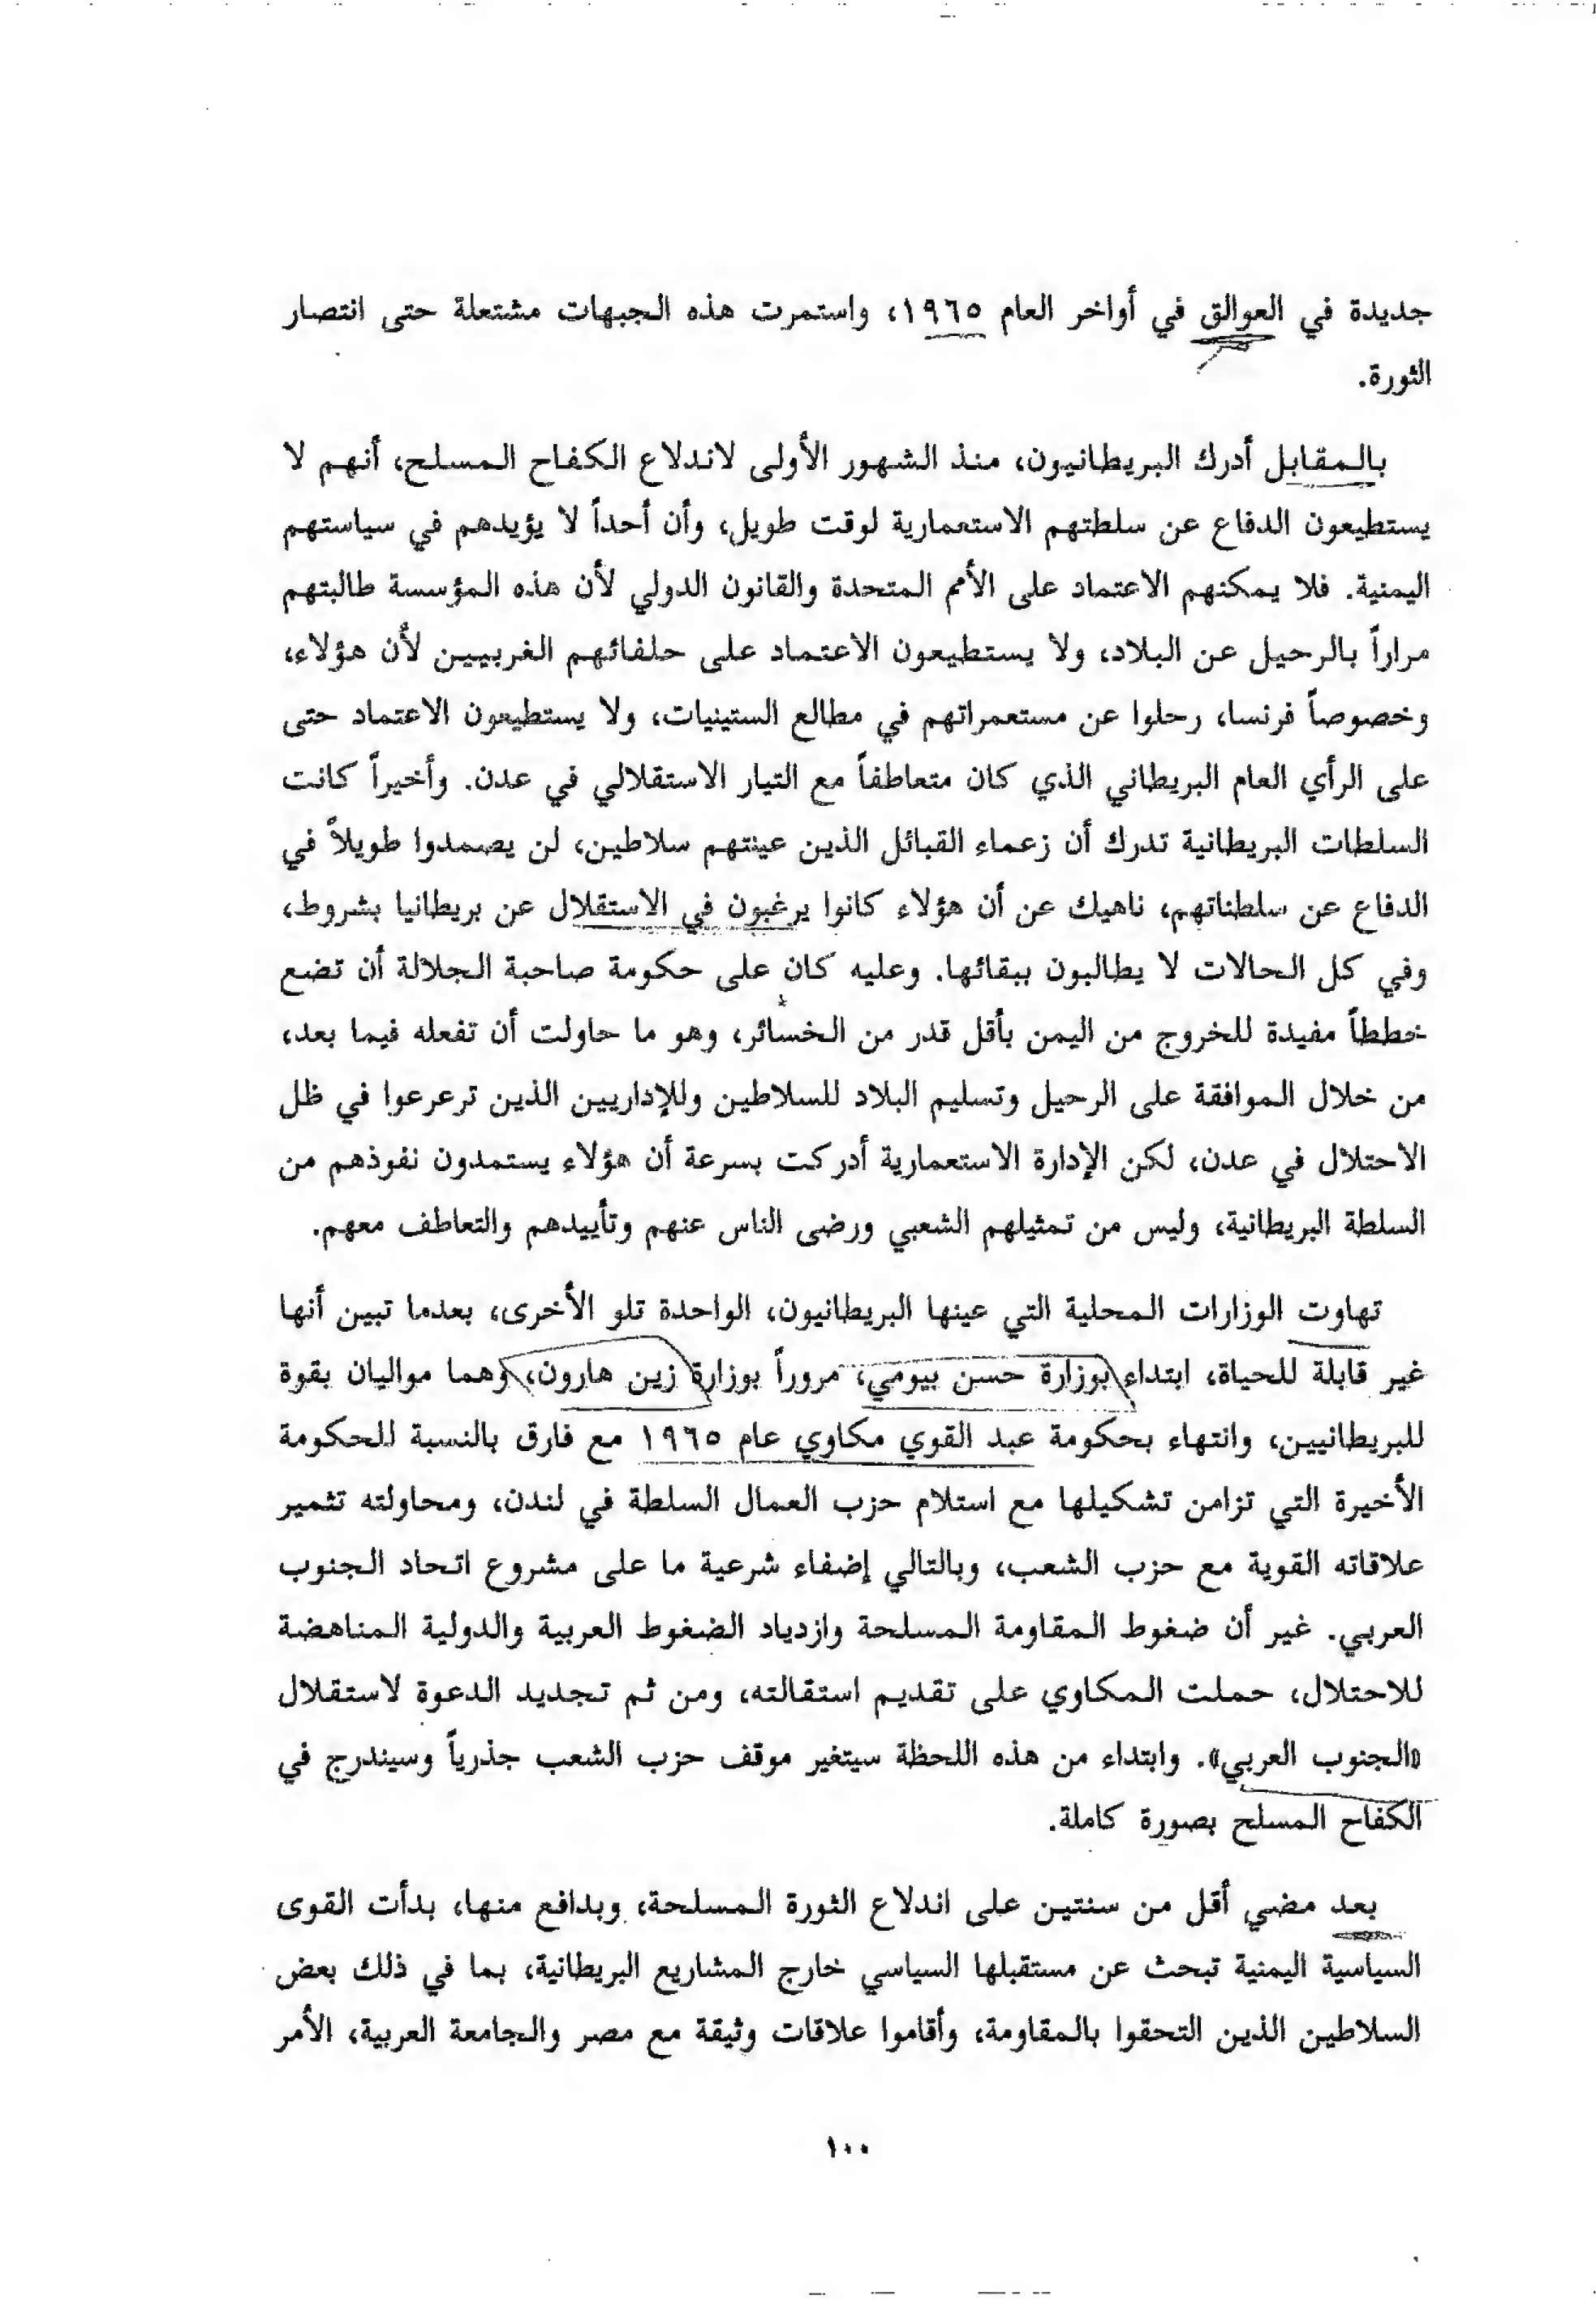 جديدة في العوالق في أواخر العام ١٩٦٥، واستمرت هذه الجبهات مشتعلة حتى انتصار
الثورة.
بالمقابل أدرك البريطانيون، منذ الشهور الأولى لاندلاع الكفاح المسلح، أنهم لا
يستطيعون الدفاع عن سلطتهم الاستعمارية لوقت طويل، وأن أحداً لا يؤيدهم في سياستهم
اليمنية. فلا يمكنهم الاعتماد على الأمم المتحدة والقانون الدولي لأن هذه المؤسسة طالبتهم
مراراً بالرحيل عن البلاد، ولا يستطيعون الاعتماد على حلفائهم الغربيين لأن هؤلاء،
وخصوصاً فرنسا، رحلوا عن مستعمراتهم في مطالع الستينيات، ولا يستطيعون الاعتماد حتى
على الرأي العام البريطاني الذي كان متعاطفاً مع التيار الاستقلالي في عدن. وأخيراً كانت
السلطات البريطانية تدرك أن زعماء القبائل الذين عينتهم سلاطين، لن يصمدوا طويلاً في
الدفاع عن سلطناتهم، ناهيك عن أن هؤلاء كانوا يرغبون في الاستقلال عن بريطانيا بشروط،
وفي كل الحالات لا يطالبون ببقائها. وعليه كان على حكومة صاحبة الجلالة أن تضع
خططاً مفيدة للخروج من اليمن بأقل قدر من الخسائر، وهو ما حاولت أن تفعله فيما بعد،
من خلال الموافقة على الرحيل وتسليم البلاد للسلاطين وللإداريين الذين ترعرعوا في ظل
الاحتلال في عدن، لكن الإدارة الاستعمارية أدركت بسرعة أن هؤلاء يستمدون نفوذهم من
السلطة البريطانية، وليس من تمثيلهم الشعبي ورضى الناس عنهم وتأييدهم والتعاطف معهم.
تهاوت الوزارات المحلية التي عينها البريطانيون، الواحدة تلو الأخرى، بعدما تبين أنها
غير قابلة للحياة، ابتداء بوزارة حسن بيومي، مروراً بوزارة زين هارون، وهما مواليان بقوة
للبريطانيين، وانتهاء بحكومة عبد القوي مكاوي عام ١٩٦٥ مع فارق بالنسبة للحكومة
الأخيرة التي تزامن تشكيلها مع استلام حزب العمال السلطة في لندن، ومحاولته تثمير
علاقاته القوية مع حزب الشعب، وبالتالي إضفاء شرعية ما على مشروع اتحاد الجنوب
العربي. غير أن ضغوط المقاومة المسلحة وازدياد الضغوط العربية والدولية المناهضة
للاحتلال، حملت المكاوي على تقديم استقالته، ومن ثم تجديد الدعوة لاستقلال
«الجنوب العربي». وابتداء من هذه اللحظة سيتغير موقف حزب الشعب جذرياً وسيندرج في
الكفاح المسلح بصورة كاملة.
بعد مضي أقل من سنتين على اندلاع الثورة المسلحة، وبدافع منها، بدأت القوى
السياسية اليمنية تبحث عن مستقبلها السياسي خارج المشاريع البريطانية، بما في ذلك بعض
السلاطين الذين التحقوا بالمقاومة، وأقاموا علاقات وثيقة مع مصر والجامعة العربية، الأمر
١٠٠